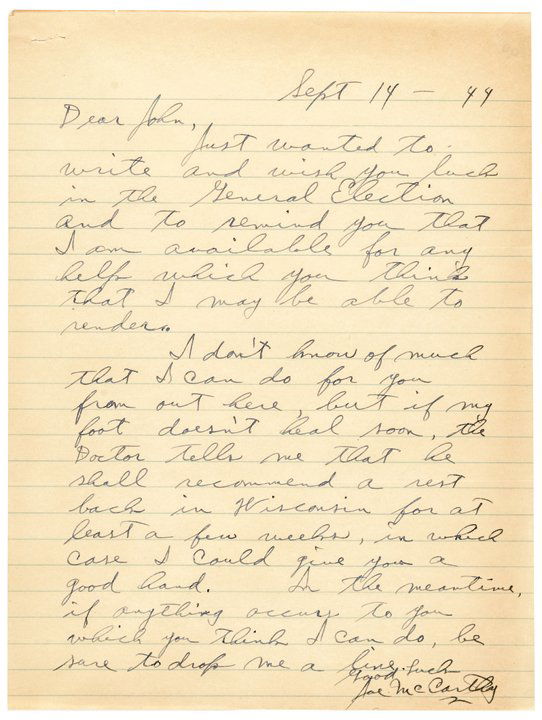 Sept 14 - 44
Dear John,
Just wanted to
write and wish you luck
in the General Election
and to remind you that
I am available for any
help which you think
that I may be able to
render.
I don't know of much
that I can do for you
from out here, but if my
foot doesn't heal soon, the
Doctor tells me that he
shall recommend a rest
back in Wisconsin for at
least a few weeks, in which
case I could give you a
good hand. In the meantime,
if anything occurs to you
which you think I can do, be
sure to drop me a line.
Good luck
Joe McCarthy